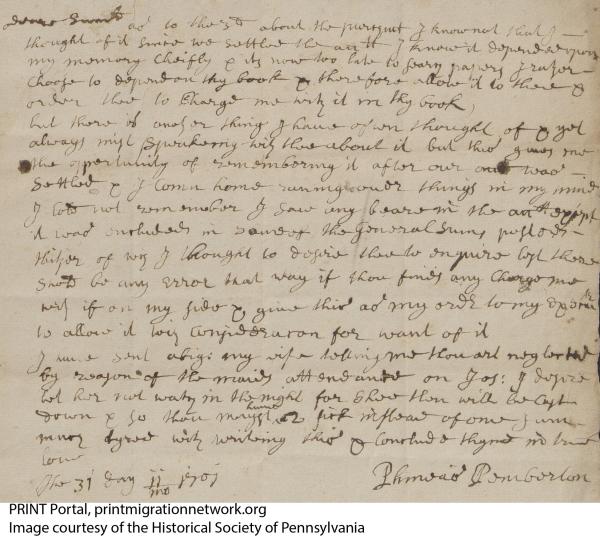 deare Friend as to the 3d about the I know not that I
thought of it Since we settled the acctt I know it depended upon
my memory Cheifly & its now too late to searh papers I rather
Choose to depend on thy book & therefore allow it to thee &
order thee to Charge me with it in thy book,
but there is another thing I have often thought of & yet
always mist Speakeing with thee about it but this gives me
the opertunity of remembering it after our was
Settled & I comn home runing over things in my mind
I Cold not remember I Saw any beare in the acctt exept
it was encluded in Some of the General Sums posted
thither of wch I thought to desire thee to enquire lest there
Shold be any Error that way if thou finds any Charge me
with if on my side & give this as my ordr to my
to allow it with Consideracon for want of it
I have sent abig: my wife telling me thou art neglected
by reason of the maids attendance on Jos: I desire
let her not watch in the night for Shee then will be Cast
down & So thou have 2 Sick instead of one I am
much tyred with writeing this & Conclude thyne in true
Love
The 31 day 11 mo 1701 Phineas Pemberton
PRINT Portal, printmigrationnetwork.org
Image courtesy of the Historical Society of Pennsylvania